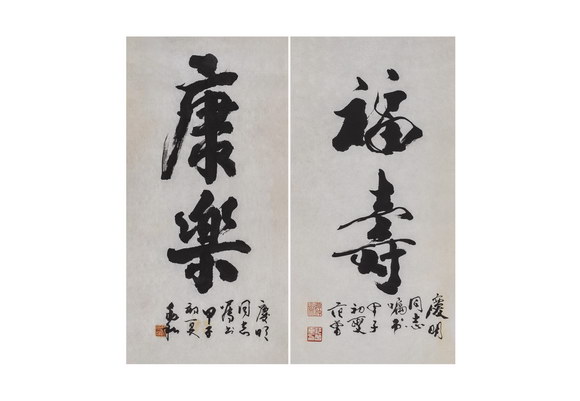 福壽
慶明
同志
囑書
甲子
初夏
康樂
慶明
同志
屬書
甲子
初夏